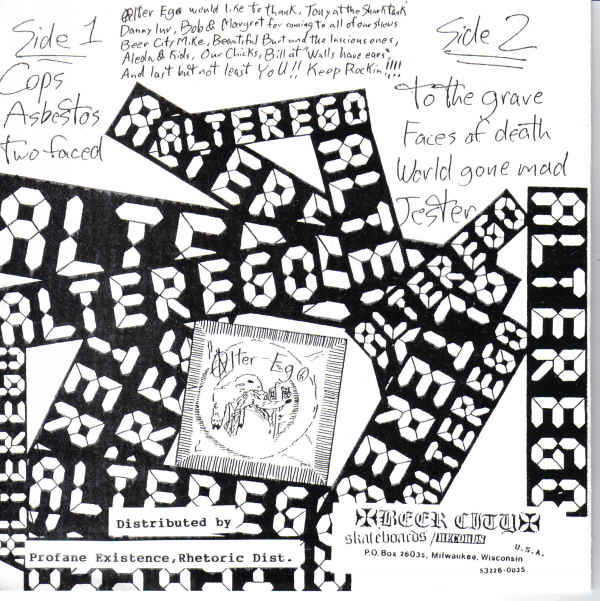 Alter Ego would like to thank, Tony at the Shark tank
Danny luv, Bob & Margret for coming to all of our shows
Beer City, Mike, Beautiful Burt and the luscious ones,
Aleda & Kids, Our Chicks, Bill at "Walls have ears",
And last but not least YOU!! Keep Rockin!!!!
Side 1
Cops
Asbestos
Two faced
Side 2
To the grave
Faces of death
World gone mad
Jester
ALTER EGO
ALTER EGO
ALTER EGO
ALTER EGO
ALTER EGO
ALTER EGO
"Alter Ego"
Distributed by
Profane Existence,Rhetoric Dist.
BEER CITY
skateboards/RECORDS
U.S.A.
P.O. Box 26035, Milwaukee, Wisconsin
53226-0035